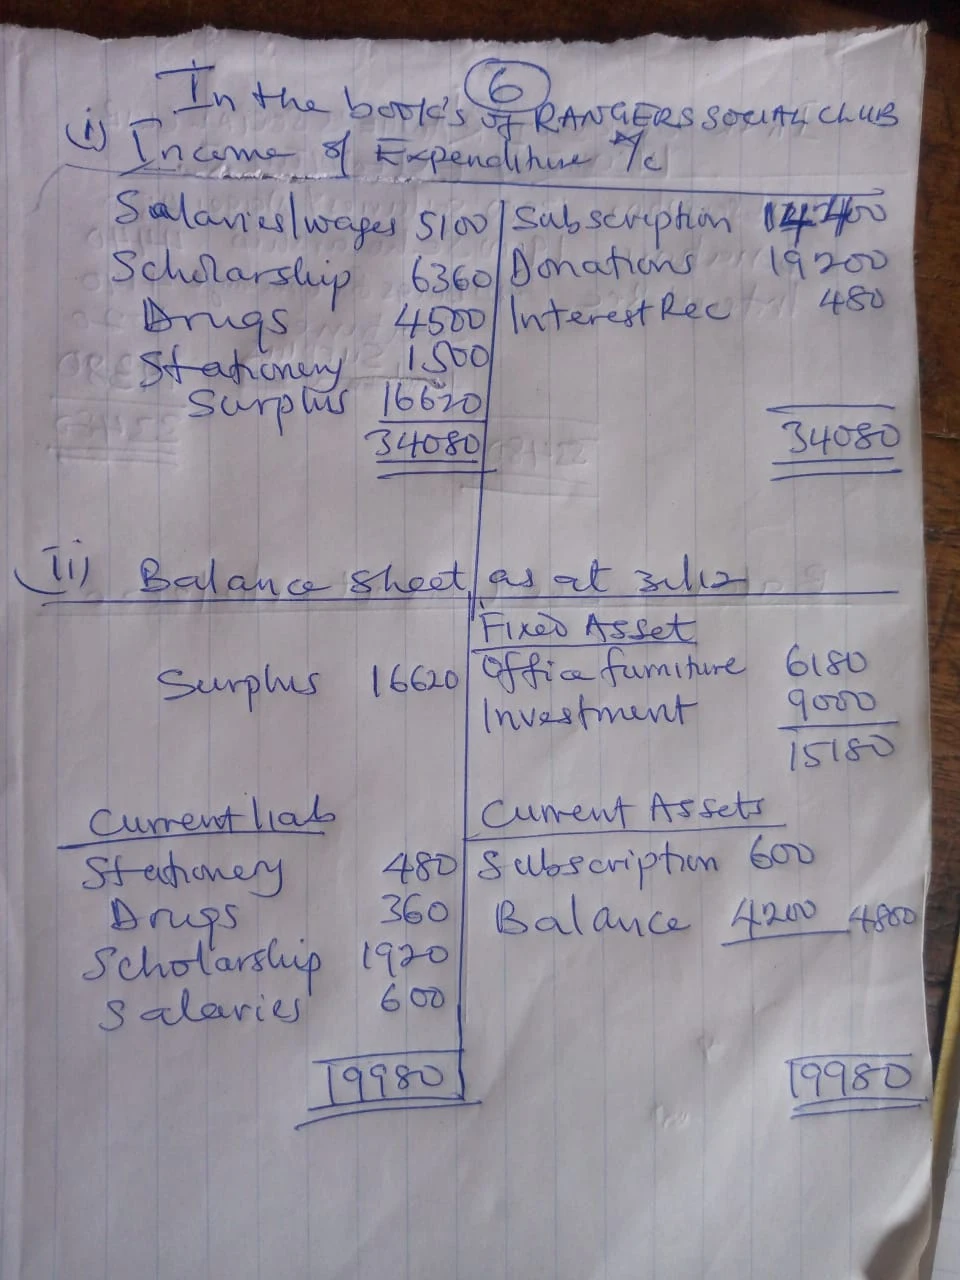 6
In the book's of RANGERS SOCIAL CLUB
(i) Income & Expenditure A/c
Salaries/wages 5100 Subscription 14400
Scholarship 6360 Donations 19200
Drugs 4500 Interest Rec 480
Stationery 1500
Surplus 16620
34080 34080
ii) Balance sheet as at 31.12
Fixed Asset
Surplus 16620 Office furniture 6180
Investment 9000
15180
Current liab Current Assets
Stationery 480 Subscription 600
Drugs 360 Balance 4200 4800
Scholarship 1920
Salaries 600
19980 19980